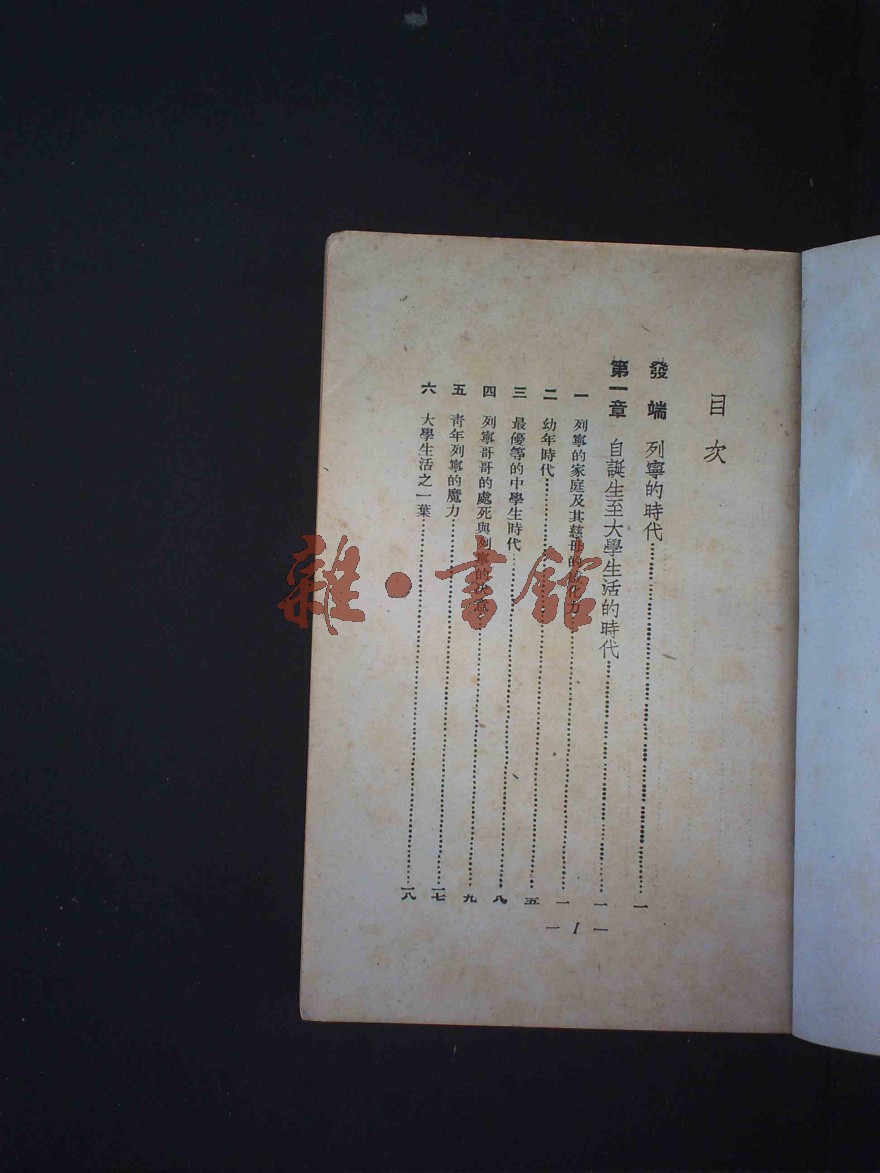 目次
發端 列寧的時代……………一
第一章 自誕生至大學生活的時代……………一
一 列寧的家庭及其慈母的感化力……………一
二 幼年時代……………五
三 最優等的中學生時代……………八
四 列寧哥哥的處死與列寧的決意……………九
五 青年列寧的魔力……………一七
六 大學生活之一葉……………一八
— I —
雜·書館